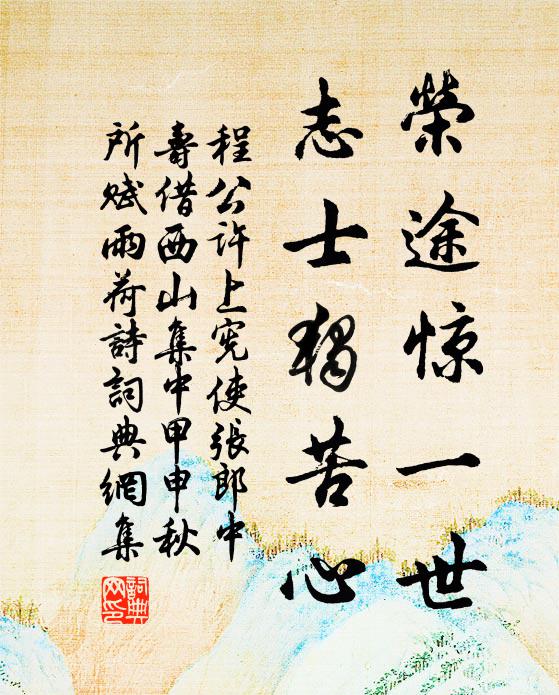 榮途惊一世
志士獨苦心
程公许上宪使張郎中
壽借西山集中甲申秋
所赋雨荷詩詞典網集
詞典
网印